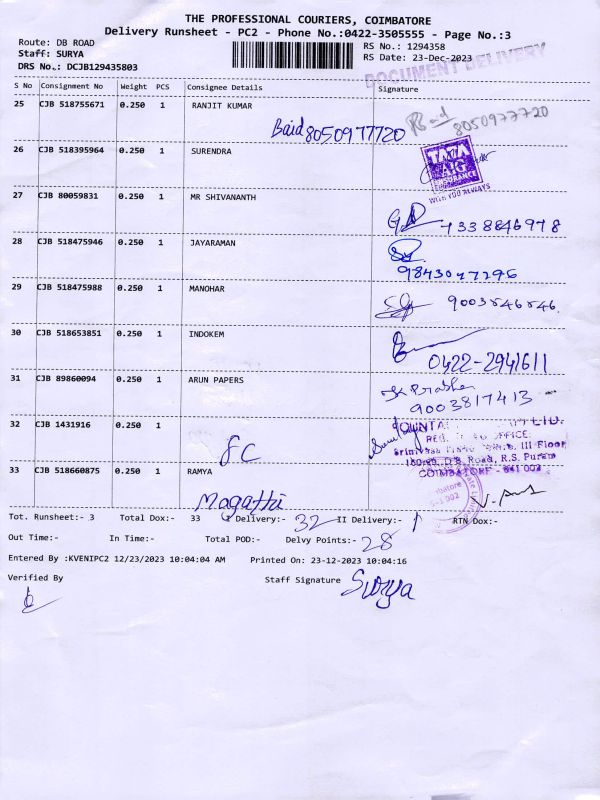 THE PROFESSIONAL COURIERS, COIMBATORE
Delivery Runsheet - PC2 - Phone No.:0422-3505555 - Page No.:3
Route: DB ROAD
RS No.: 1294358
Staff: SURYA
RS Date: 23-Dec-2023
DRS No.: DCJB129435803
DOCUMENT DELIVERY
S No Consignment No Weight PCS Consignee Details Signature
25 CJB 518755671 0.250 1 RANJIT KUMAR
Baid 8050977720 8050977720
26 CJB 518395964 0.250 1 SURENDRA
TATA AIG
INSURANCE
WITH YOU ALWAYS
27 CJB 80059831 0.250 1 MR SHIVANANTH
7338846978
28 CJB 518475946 0.250 1 JAYARAMAN
9843047296
29 CJB 518475988 0.250 1 MANOHAR
9003546546
30 CJB 518653851 0.250 1 INDOKEM
0422-2941611
31 CJB 89860094 0.250 1 ARUN PAPERS
9003817413
32 CJB 1431916 0.250 1
III Floor
D.B. Road, R.S. Puram
COIMBATORE - 641 002
33 CJB 518660875 0.250 1 RAMYA
Tot. Runsheet:- 3 Total Dox:- 33 I Delivery:- 32 II Delivery:- 1 RTN Dox:-
Out Time:- In Time:- Total POD:- Delvy Points:- 28
Entered By :KVENIPC2 12/23/2023 10:04:04 AM Printed On: 23-12-2023 10:04:16
Verified By Staff Signature Surya